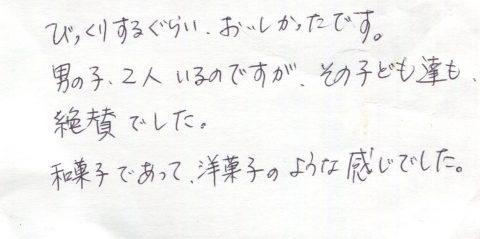 びっくりするぐらい、おいしかったです。
男の子、2人いるのですが、その子ども達も、
絶賛でした。
和菓子であって、洋菓子のような感じでした。